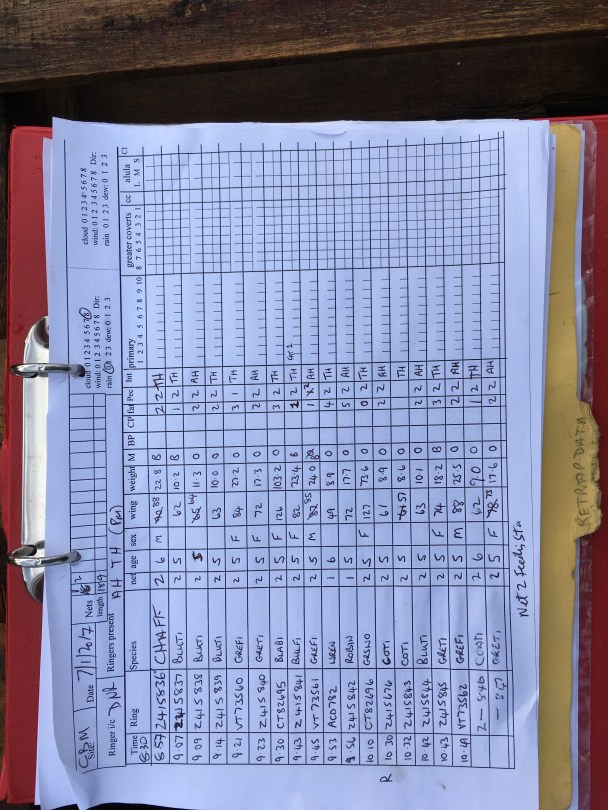 CBM Date 7/1/2017 Nets 1, 2 cloud 0 1 2 3 4 5 6 7 8 cloud 0 1 2 3 4 5 6 7 8
Site: length wind: 0 1 2 3 4 5 6 7 8 Dir: wind: 0 1 2 3 4 5 6 7 8 Dir:
Ringer i/c DNR Ringers present AH TH (Pm) rain 0 1 2 3 dew: 0 1 2 3 rain 0 1 2 3 dew: 0 1 2 3
Time Ring Species net age sex wing weight M BP CP fat Pec Int primary greater coverts cc alula Ct
1 2 3 4 5 6 7 8 9 10 8 7 6 5 4 3 2 1 L M S
8.30
8.57 Z415836 CHAFF 2 6 M 88 22.8 B 2 2 TH
9.07 Z415837 BLUTI 2 5 62 10.2 B 1 2 TH
9.09 Z415838 BLUTI 2 5 65 64 11.3 0 2 2 AH
9.14 Z415839 BLUTI 2 5 63 10.0 0 2 2 TH
9.21 VT73560 GREFI 2 5 F 84 27.2 0 3 1 TH
9.23 Z415840 GRETI 2 5 F 72 17.3 0 2 2 AH
9.30 CT82695 BLABI 2 5 F 126 103.2 0 3 2 TH
9.43 Z415841 BULFI 2 5 F 82 23.4 B 2 2 TH Gr 2
9.45 VT73561 GREFI 2 5 M 85 24.0 B 1 2 AH
9.53 ACD782 WREN 1 6 49 8.9 0 4 2 TH
9.56 Z415842 ROBIN 1 5 72 17.7 0 5 2 AH
10.10 CT82696 GRSWO 2 5 F 127 73.6 0 0 2 TH
R 10.30 Z415676 COTI 2 5 61 8.9 0 2 2 AH
10.32 Z415843 COTI 2 5 57 8.6 0 TH
10.42 Z415844 BLUTI 2 5 63 10.1 0 2 2 AH
10.43 Z415845 GRETI 2 5 F 74 18.2 B 3 2 TH
10.49 VT73562 GREFI 2 5 M 88 25.5 0 2 2 AH
2 — 846 COATI 2 6 62 9.0 0 1 2 TH
— 847 GRETI 2 5 F 78 73 17.6 0 2 2 AH
Net 2 Feeding Sta
RETRAP DATA